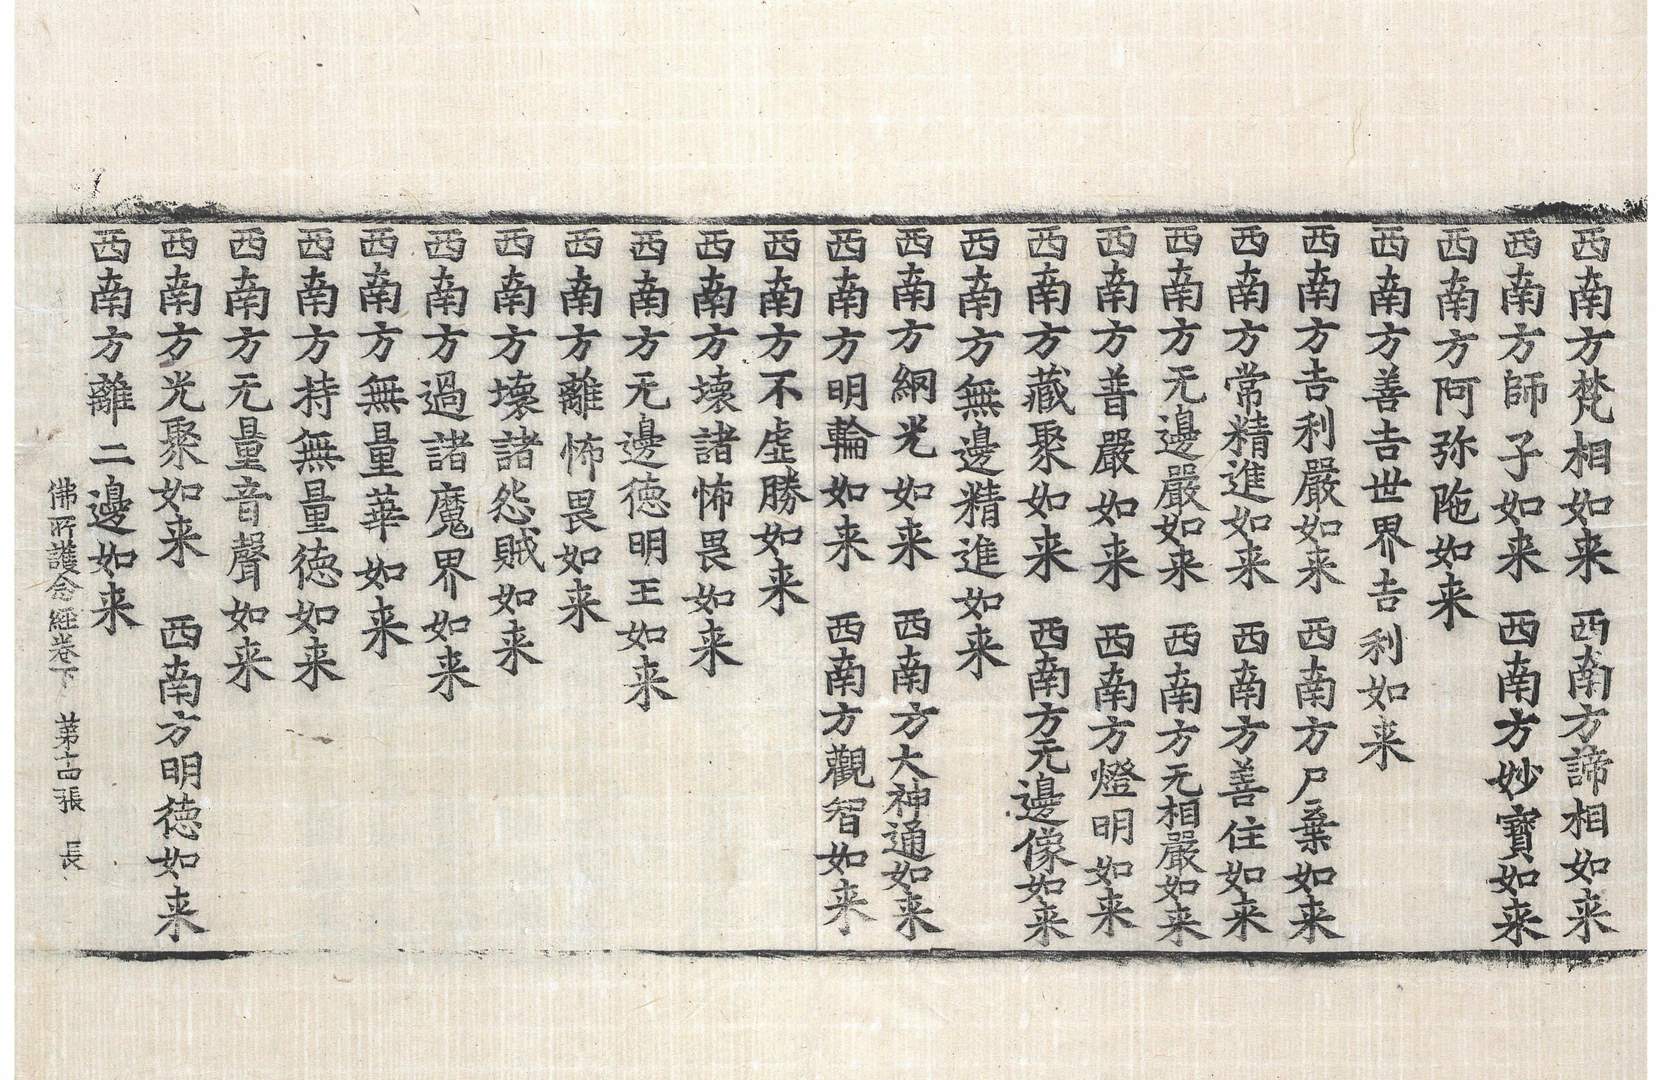 西南方梵相如来　西南方諦相如来
西南方師子如来　西南方妙寶如来
西南方阿弥陁如来
西南方善吉世界吉利如来
西南方吉利嚴如来　西南方尸棄如来
西南方常精進如来　西南方善住如来
西南方无邊嚴如来　西南方无相嚴如来
西南方普嚴如来　西南方燈明如来
西南方藏聚如来　西南方无邊像如来
西南方無邊精進如来
西南方網光如来　西南方大神通如来
西南方明輪如来　西南方觀智如来
西南方不虛勝如来
西南方壞諸怖畏如来
西南方无邊德明王如来
西南方離怖畏如来
西南方壞諸怨賊如来
西南方過諸魔界如来
西南方無量華如来
西南方持無量德如来
西南方无量音聲如来
西南方光聚如来　西南方明德如来
西南方離二邊如来
佛所護念經卷下　第十四張　長